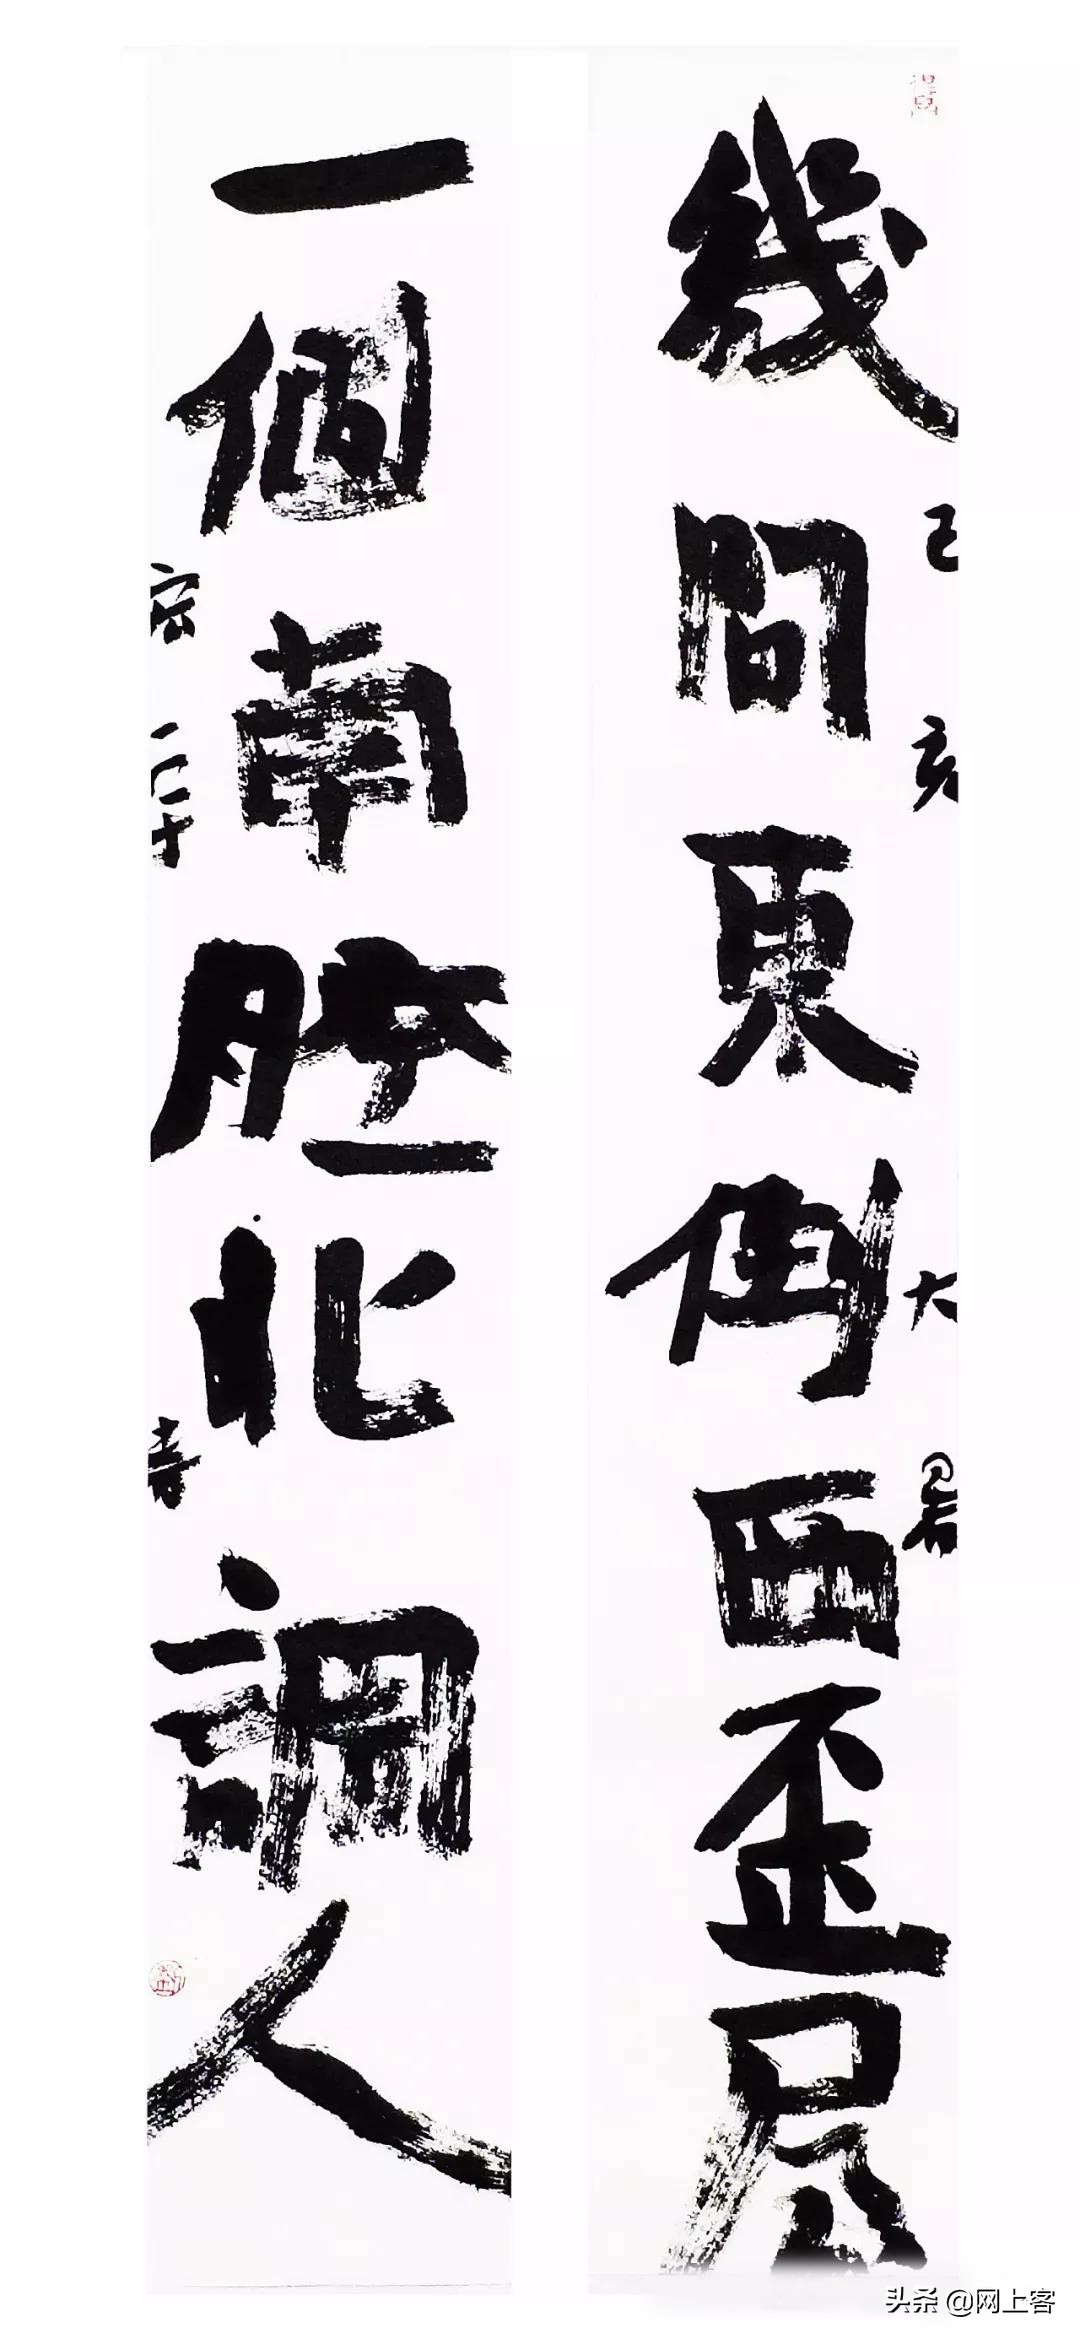 幾間東倒西歪屋
己亥大暑
一個南腔北調人
書
头条 @网上客